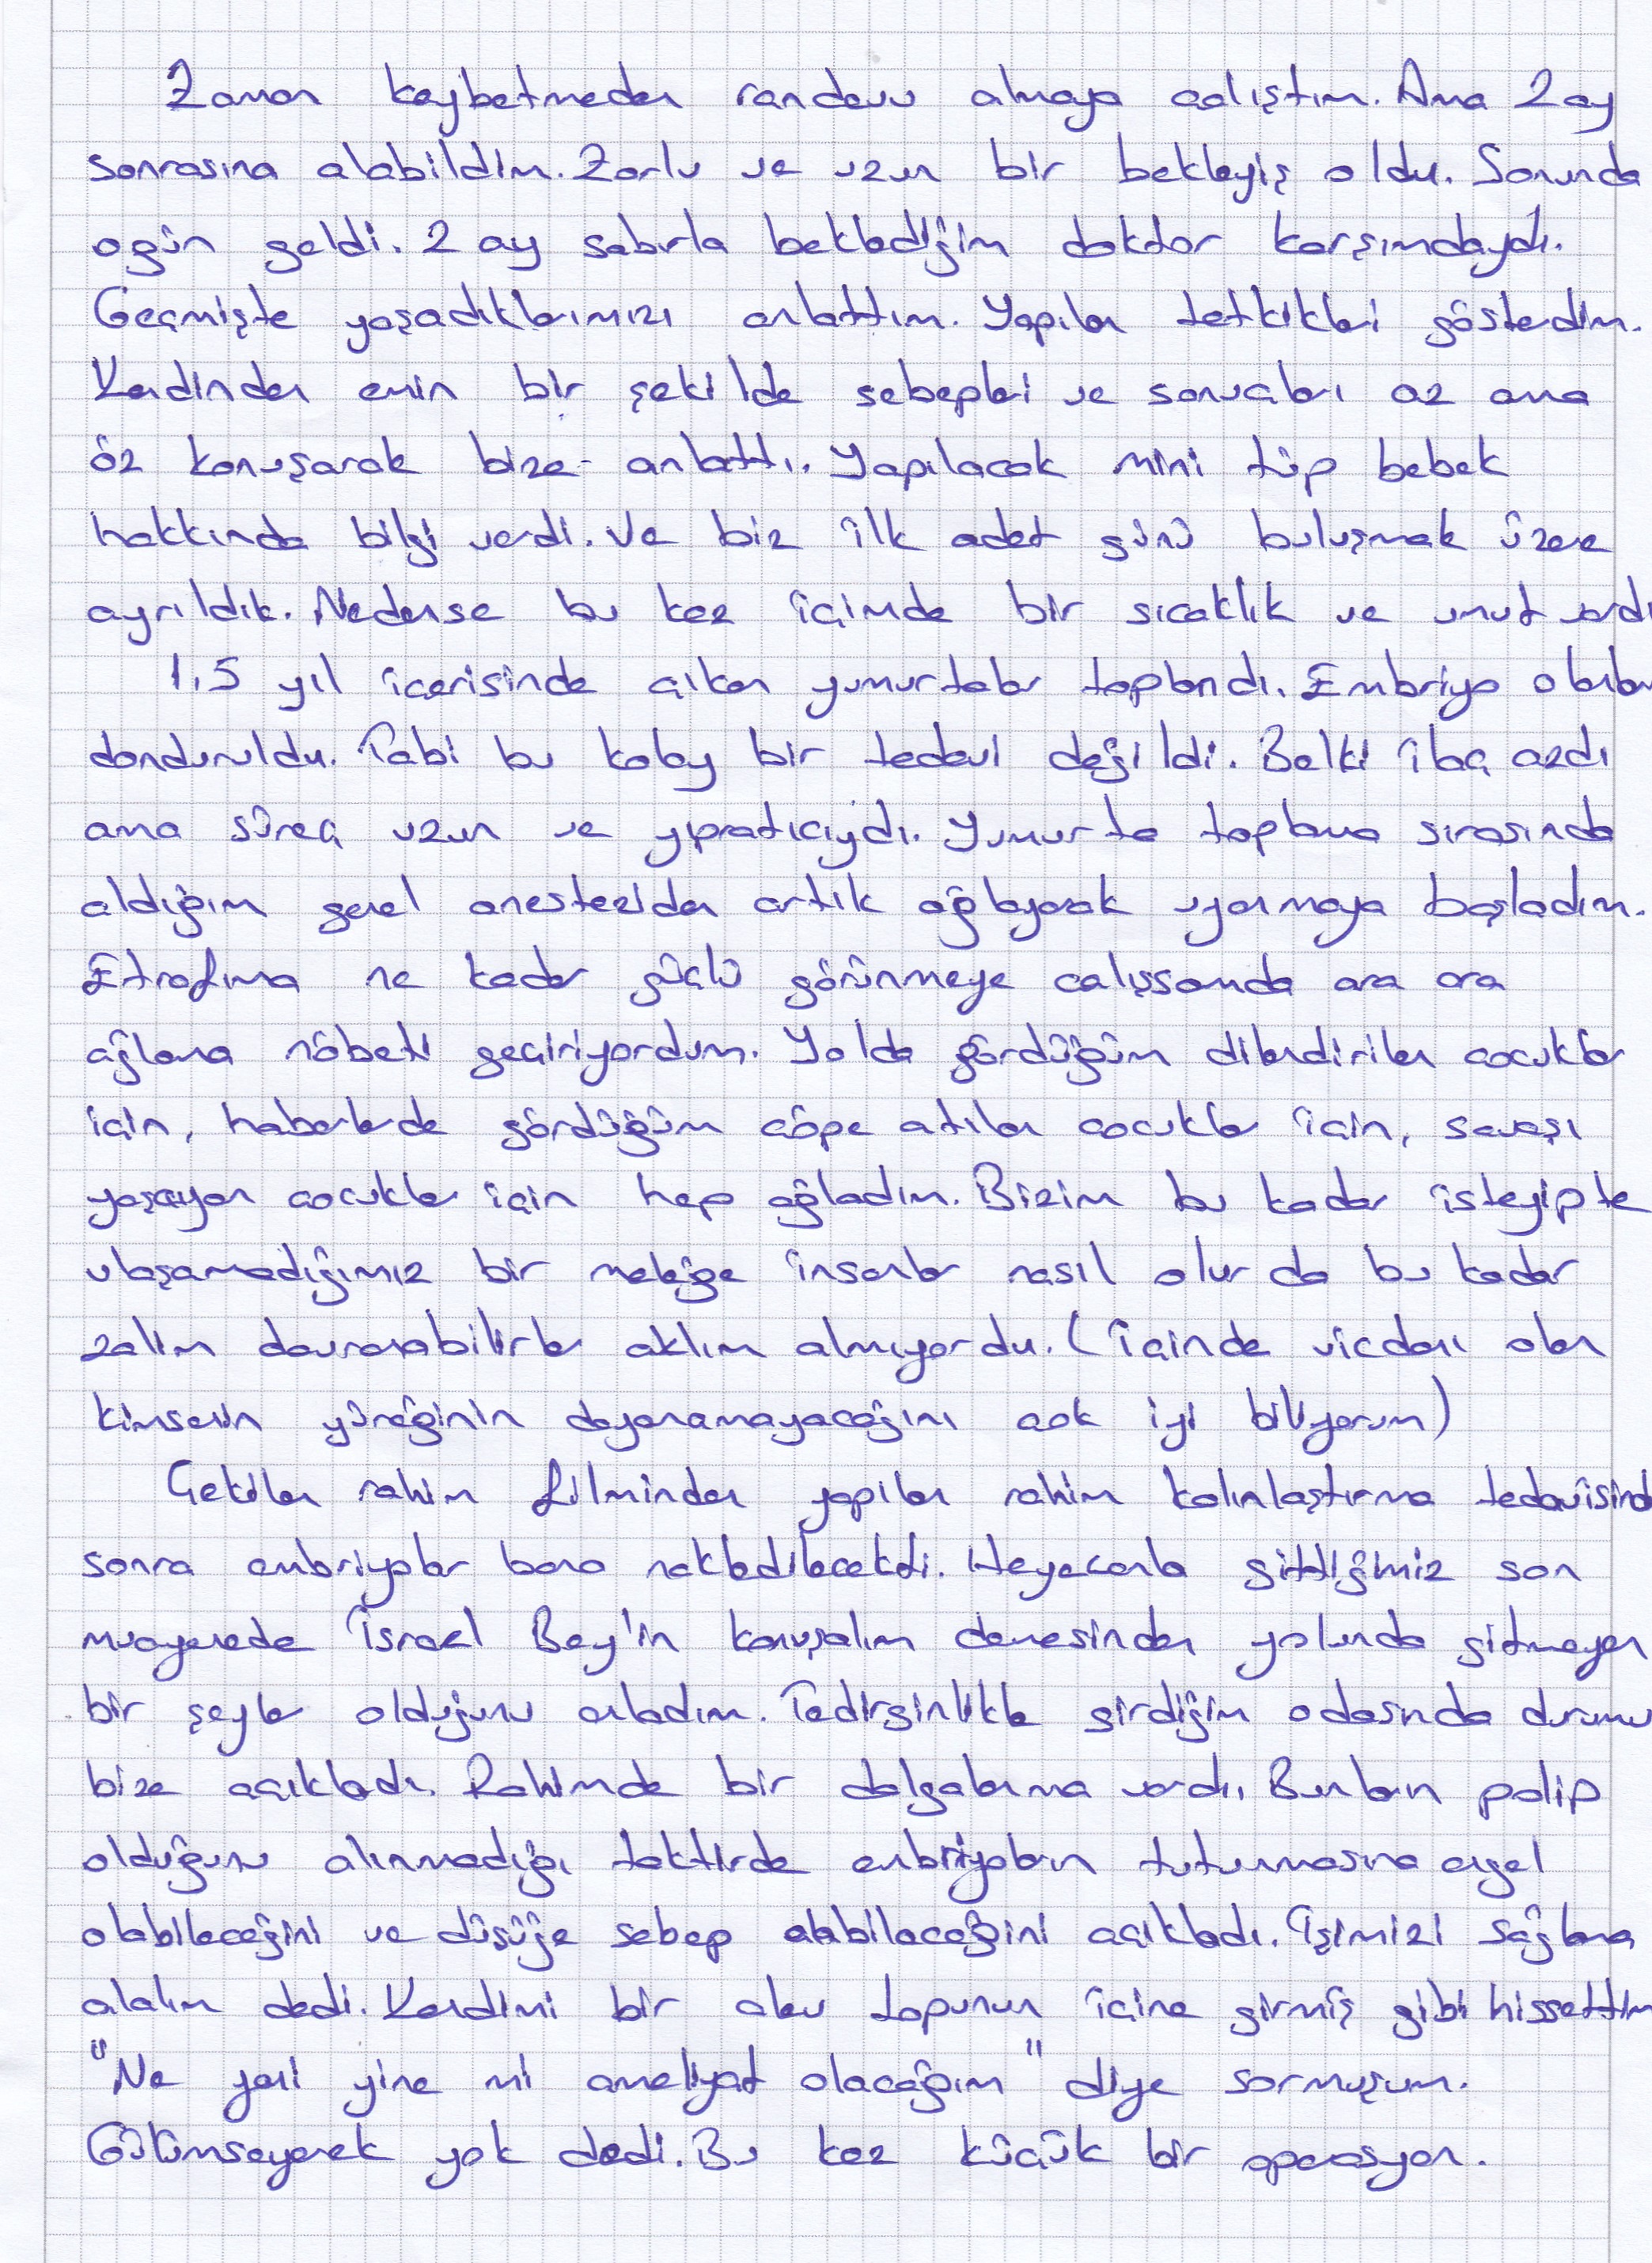 Zaman kaybetmeden randevu almaya çalıştım. Ama 2 ay
sonrasına alabildim. Zorlu ve uzun bir bekleyiş oldu. Sonunda
o gün geldi. 2 ay sabırla beklediğim doktor karşımdaydı.
Geçmişte yaşadıklarımızı anlattım. Yapılan tetkikleri gösterdim.
Kendinden emin bir şekilde sebepleri ve sonuçları az ama
öz konuşarak bize anlattı. Yapılacak mini tüp bebek
hakkında bilgi verdi. Ve biz ilk adet günü buluşmak üzere
ayrıldık. Nedense bu kez içimde bir sıcaklık ve umut vardı
1,5 yıl içerisinde çıkan yumurtalar toplandı. Embriyo olanlar
donduruldu. Tabi bu kolay bir tedavi değildi. Belki ilaç azdı
ama süreç uzun ve yıpratıcıydı. Yumurta toplama sırasında
aldığım genel anesteziden artık ağlayarak uyanmaya başladım.
Etrafıma ne kadar güçlü görünmeye çalışsamda ara ara
ağlama nöbeti geçiriyordum. Yolda gördüğüm dilendirilen çocuklar
için, haberlerde gördüğüm çöpe atılan çocuklar için, savaşı
yaşayan çocuklar için hep ağladım. Bizim bu kadar isteyipte
ulaşamadığımız bir meleğe insanlar nasıl olur da bu kadar
zalim davranabilirler aklım almıyordu. (İçinde vicdanı olan
kimsenin yüreğinin dayanamayacağını çok iyi biliyorum)
Çekilen rahim filminden yapılan rahim kalınlaştırma tedavisind
sonra embriyolar bana nakledilecekti. Heyecanla gittiğimiz son
muayenede İsrael Bey'in konuşalım demesinden yolunda gitmeyen
bir şeyler olduğunu anladım. Tedirginlikle girdiğim odasında durumu
bize açıkladı. Rahimde bir dalgalanma vardı, Bunların polip
olduğunu alınmadığı taktirde embriyoların tutunmasına engel
olabileceğini ve düşüğe sebep olabileceğini açıkladı. İşimizi sağlama
alalım dedi. Kendimi bir alev topunun içine girmiş gibi hissettim
"Ne yani yine mi ameliyat olacağım" diye sormuşum.
Gülümseyerek yok dedi. Bu kez küçük bir operasyon.